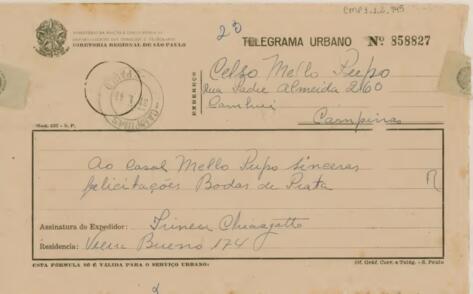 CMP 3.1.2.945
23
MINISTÉRIO DA VIAÇÃO E OBRAS PÚBLICAS
DEPARTAMENTO DOS CORREIOS E TELÉGRAFOS
DIRETORIA REGIONAL DE SÃO PAULO
TELEGRAMA URBANO Nº 858827
ENDEREÇO
Celso Mello Pupo
rua Padre Almeida 260
Cambuí
Campinas
CAMPINAS
Mod. - S. P.
Ao Casal Mello Pupo sinceras
felicitações Bodas de Prata
Assinatura do Expedidor: Irineu
Residencia: Vieira Bueno 174
ESTA FÓRMULA SÓ É VÁLIDA PARA O SERVIÇO URBANO:
Of. Gráf. Corr. e Telég. - S. Paulo